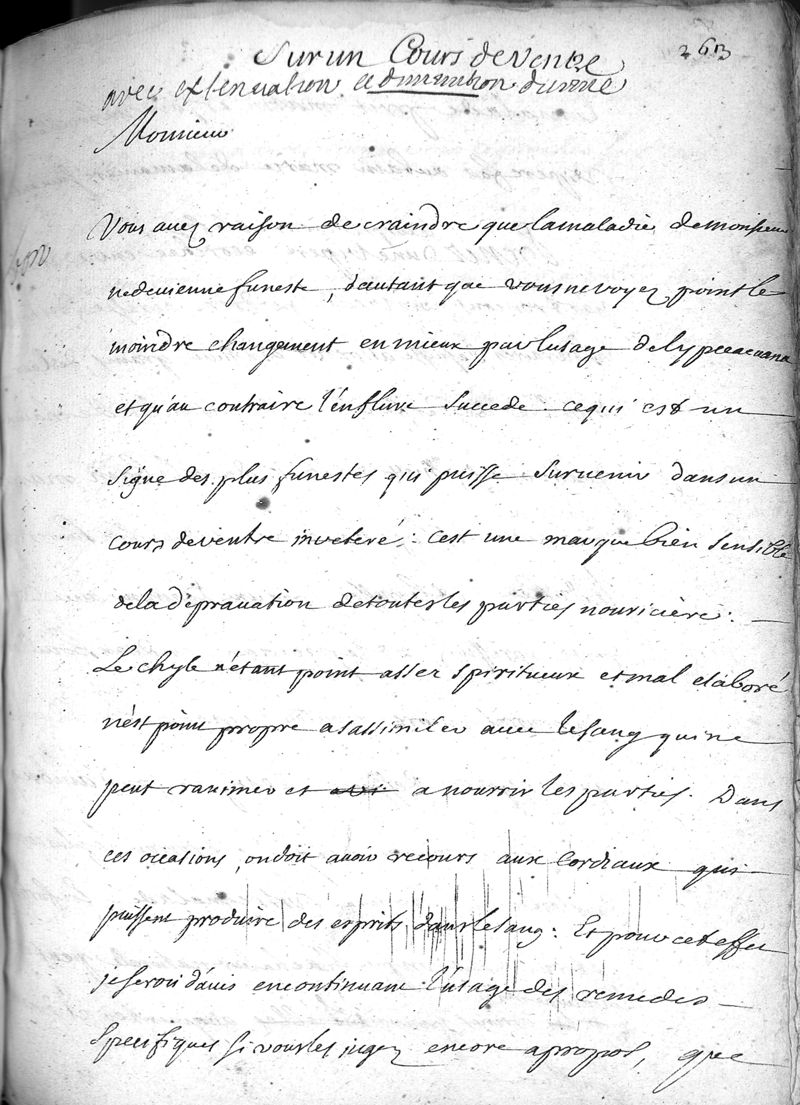 263
Sur un Cours de Ventre
avec extenuation et diminution d'urine
Monsieur
Vous avez raison de craindre que la maladie de monsieur
ne devienne funeste, d'autant que vous ne voyez point le
moindre changement en mieux par l'usage de l'ypecacuana
et qu'au contraire l'enflure succede. ce qui est un
signe des plus funestes qui puisse survenir dans un
cours de ventre inveteré: c'est une marque bien sensible
de la dépravation de toutes les parties nouricière:
Le chyle n'étant point assez spiritueux et mal elaboré
n'est point propre a s'assimiler avec le sang qui ne
peut ranimer et a nourrir les parties. Dans
ces occasions, on doit avoir recours aux Cordiaux qui
puissent produire des esprits dans le sang: Et pour cet effet
je serois d'avis en continuant l'usage des remedes
specifiques si vous les jugez encore apropos, que